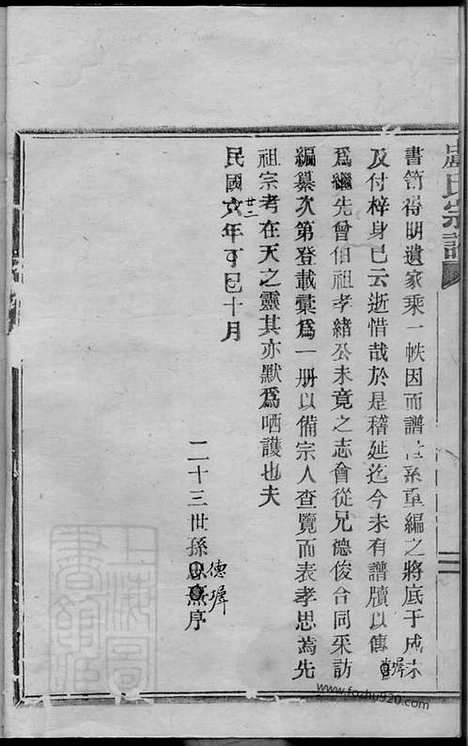 盧氏宗譜
書笥得明遺家乘一帙因而譜世系重編之將底于成未
及付梓身已云逝惜哉於是稽延迄今未有譜牘以傳
為繼先曾伯祖孝緒公未竟之志會從兄德俊合同采訪
編纂次第登載彙為一册以備宗人查覽而表孝思蔫先
祖宗考在天之靈其亦默為哂護也夫
民國六年丁巳十月
廿二
二十三世孫 熏序
德墀
墀
上海圖書館藏
www.fozhu920.com